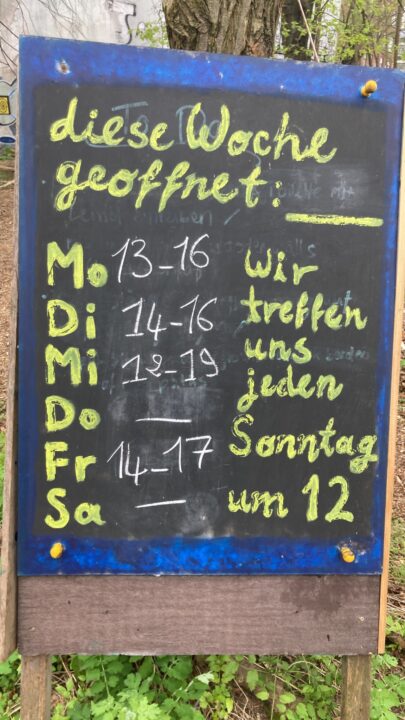 diese Woche
geoffnet:
Mo 13-16
Di 14-16
Mi 12-19
Do —
Fr 14-17
Sa —
Wir
treffen
uns
jeden
Sonntag
um 12